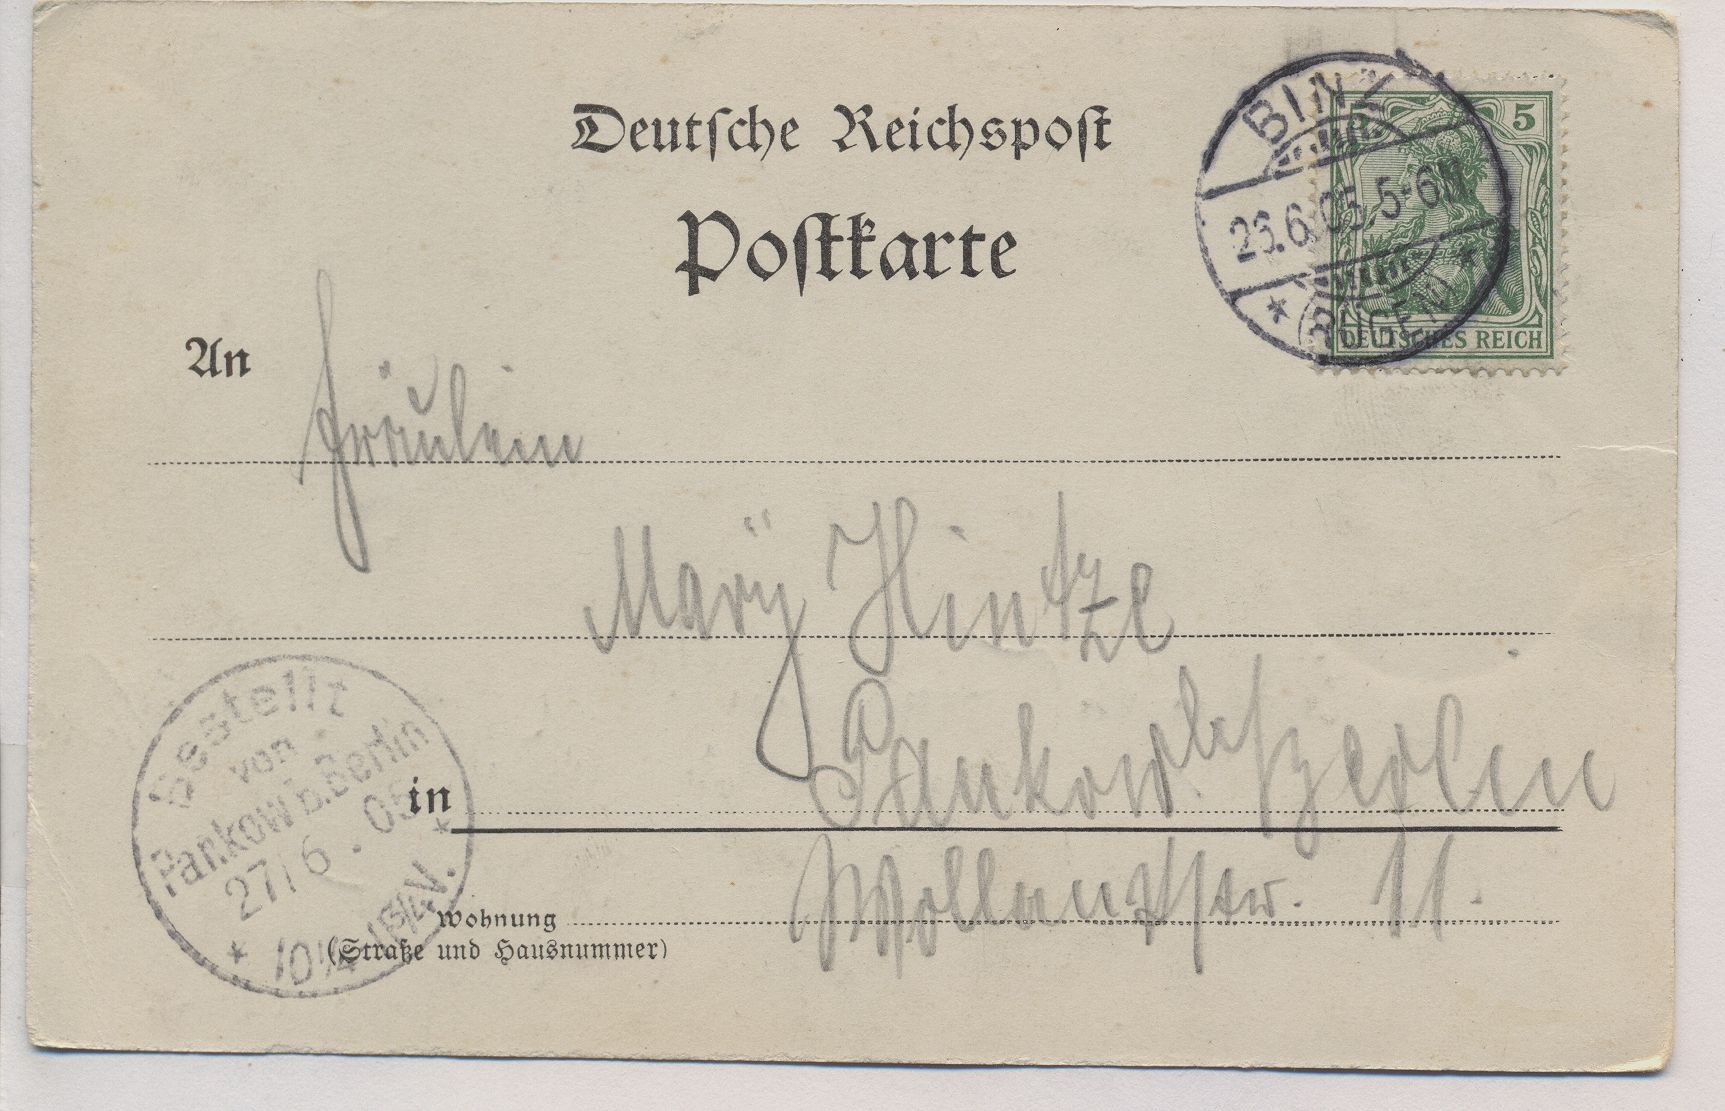 Deutsche Reichspost
Postkarte
BINZ
26.6.05.5-6N
* RÜGEN *
5
DEUTSCHES REICH
An
Fräulein
Marÿ Hintze
in
Pankow b/Berlin
Wohnung
(Straße und Hausnummer)
Wollankstr. 11.
Bestellt
von
Pankow b. Berlin
27/6. 05
* V. *